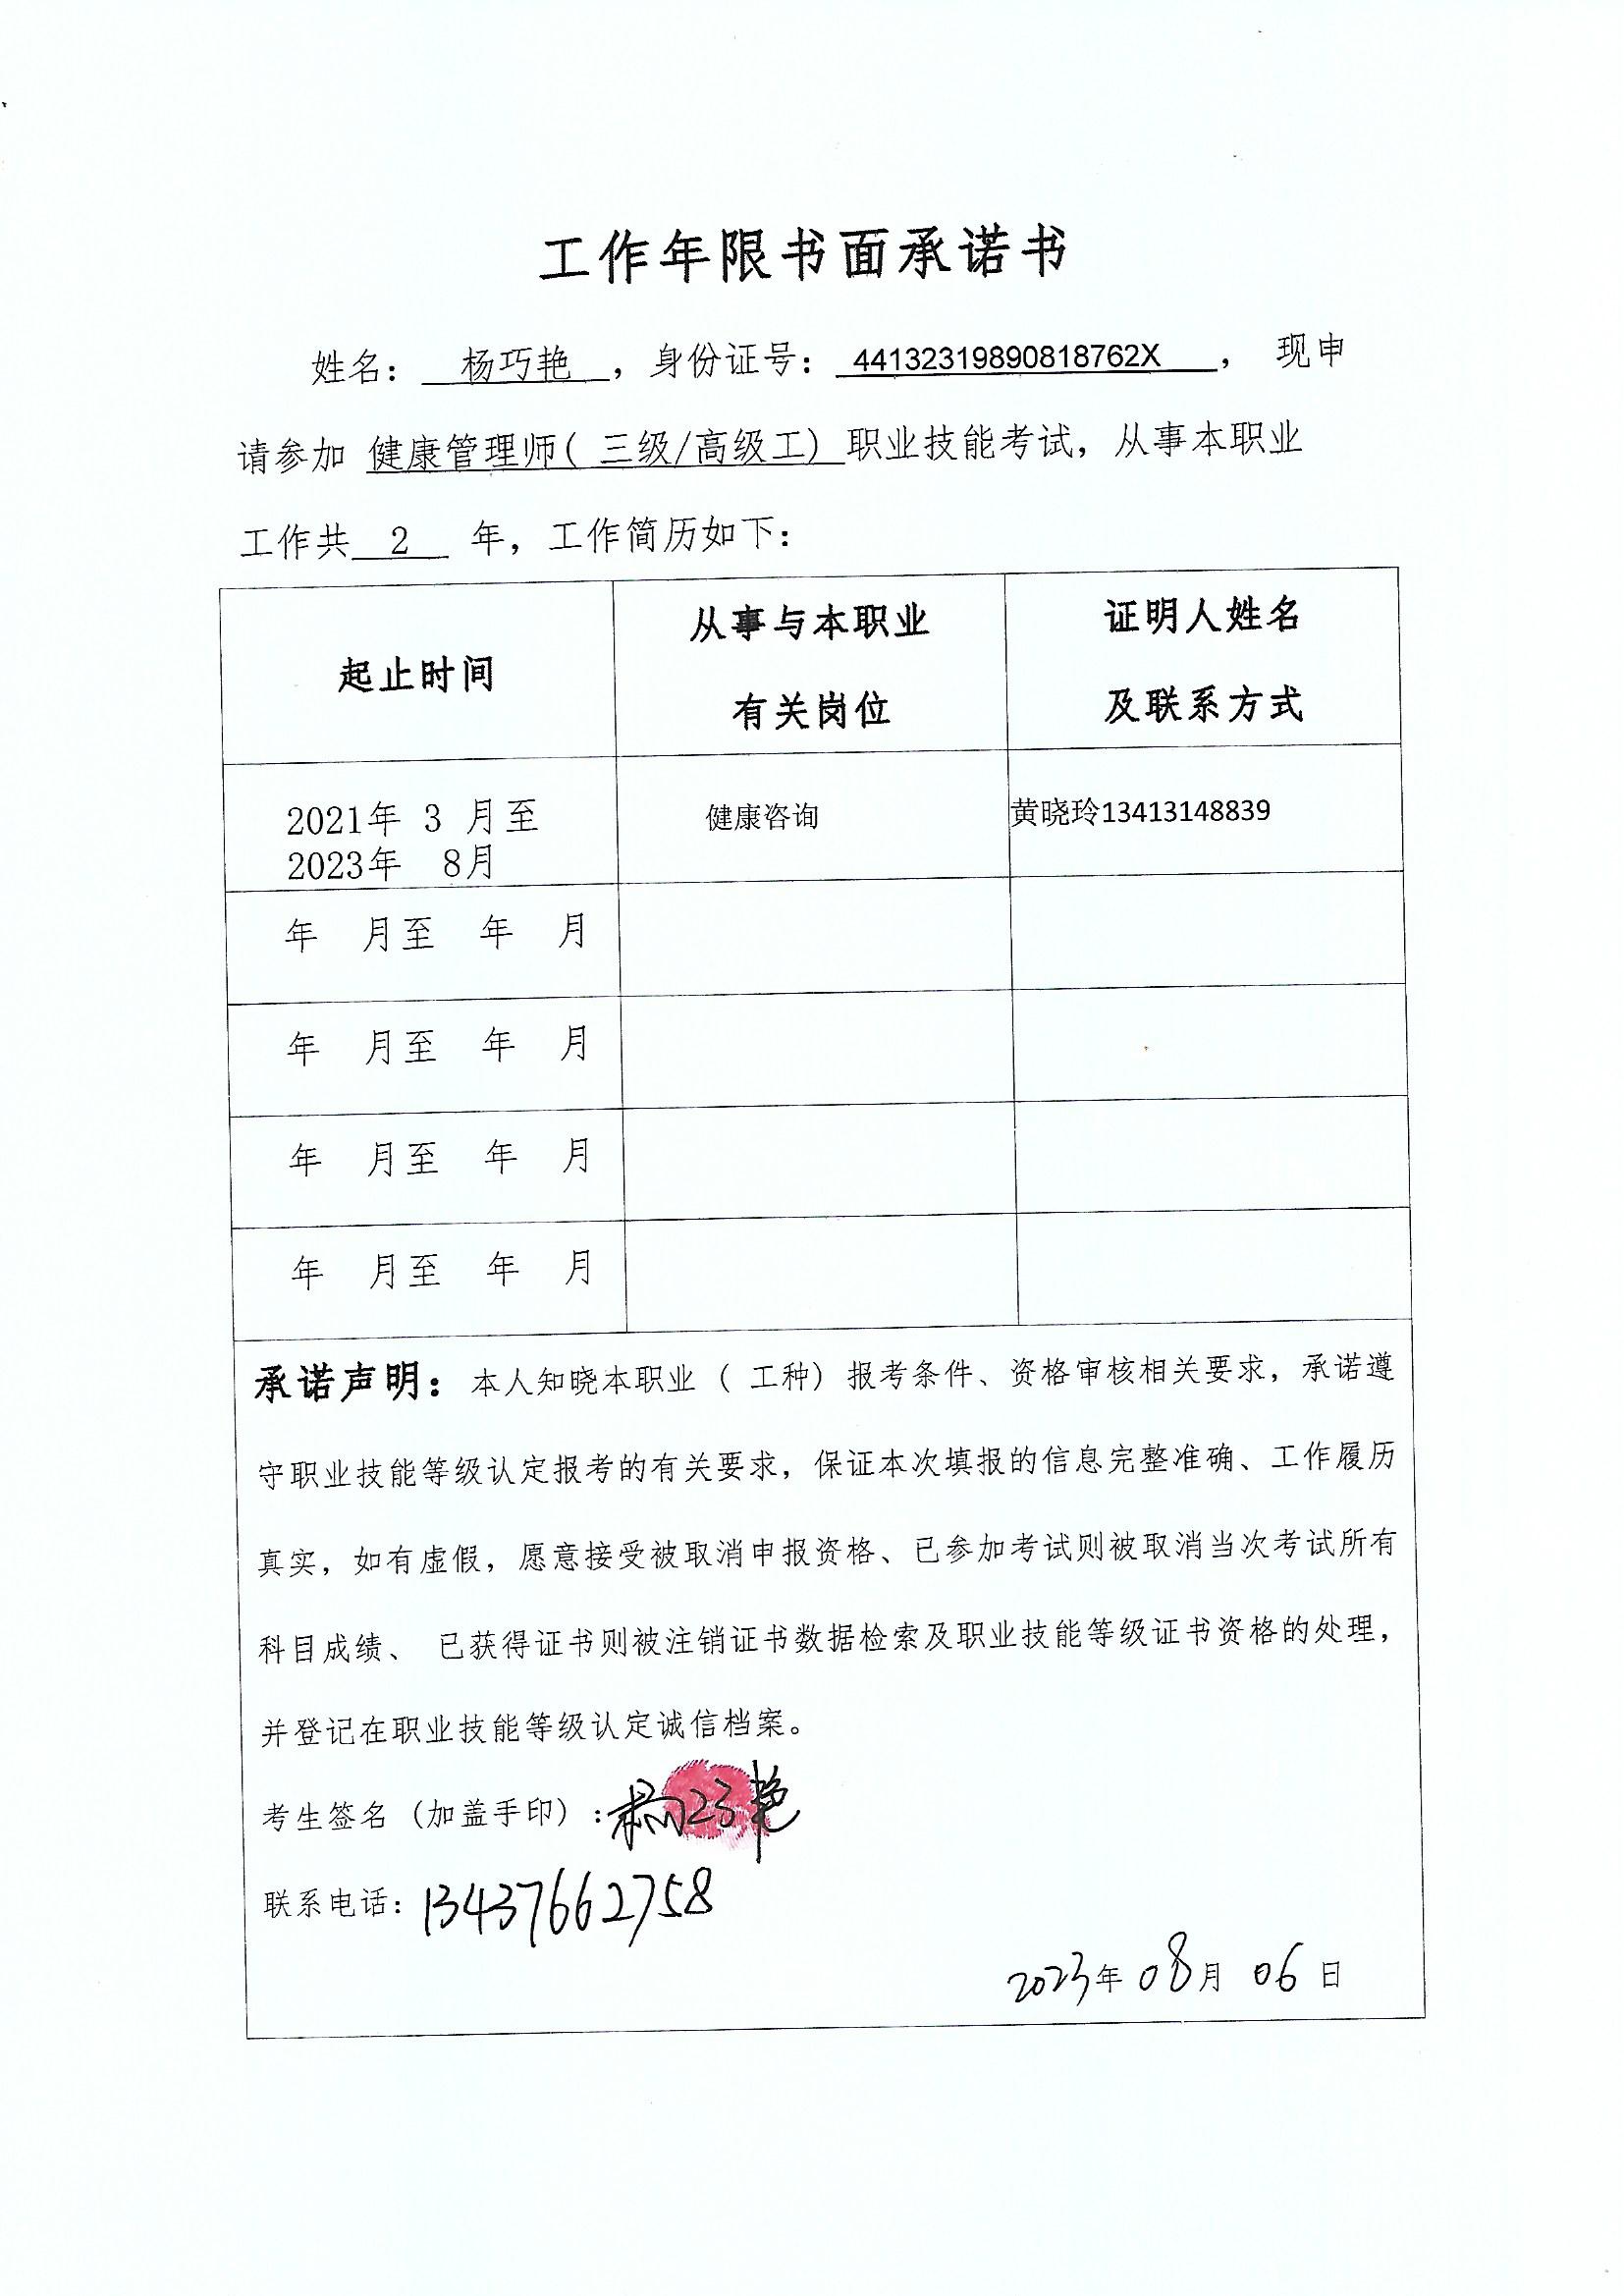 工作年限书面承诺书
姓名： 杨巧艳 ，身份证号： 44132319890818762X ， 现申
请参加 健康管理师（ 三级/高级工） 职业技能考试，从事本职业
工作共 2 年，工作简历如下：
起止时间
从事与本职业
有关岗位
证明人姓名
及联系方式
2021年 3 月至
2023年 8月
健康咨询
黄晓玲13413148839
年 月至 年 月
年 月至 年 月
年 月至 年 月
年 月至 年 月
承诺声明：本人知晓本职业（ 工种）报考条件、资格审核相关要求，承诺遵
守职业技能等级认定报考的有关要求，保证本次填报的信息完整准确、工作履历
真实，如有虚假，愿意接受被取消申报资格、已参加考试则被取消当次考试所有
科目成绩、 已获得证书则被注销证书数据检索及职业技能等级证书资格的处理，
并登记在职业技能等级认定诚信档案。
考生签名（加盖手印）：杨巧艳
联系电话：13437662758
2023年 08月 06日